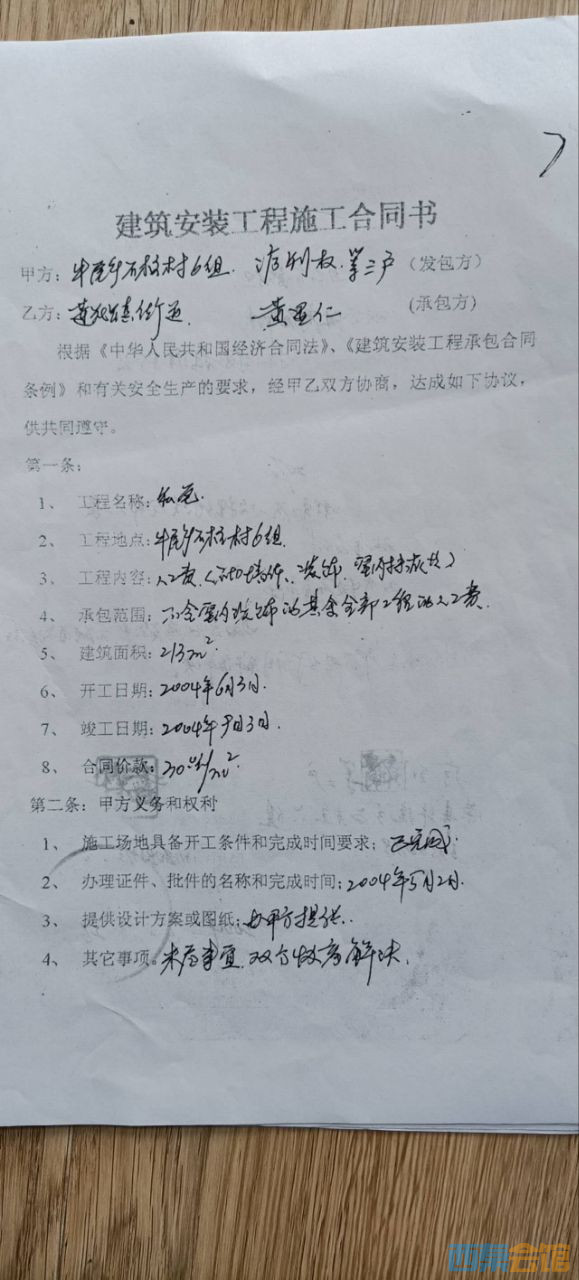 建筑安装工程施工合同书
甲方：牛尾乡石柱村6组. 等三户（发包方）
乙方： 黄显仁 （承包方）
根据《中华人民共和国经济合同法》、《建筑安装工程承包合同
条例》和有关安全生产的要求，经甲乙双方协商，达成如下协议，
供共同遵守。
第一条：
1、 工程名称：私宅.
2、 工程地点：牛尾乡石柱村6组.
3、 工程内容：人工费
4、 承包范围：不含室内装饰的其余全部工程的人工费.
5、 建筑面积：213m².
6、 开工日期：2004年6月3日.
7、 竣工日期：2004年9月3日.
8、 合同价款：/m²
第二条：甲方义务和权利
1、 施工场地具备开工条件和完成时间要求；已完成.
2、 办理证件、批件的名称和完成时间；2004年5月2日.
3、 提供设计方案或图纸；由甲方提供.
4、 其它事项。未尽事宜.双方协商解决.
西祠会馆